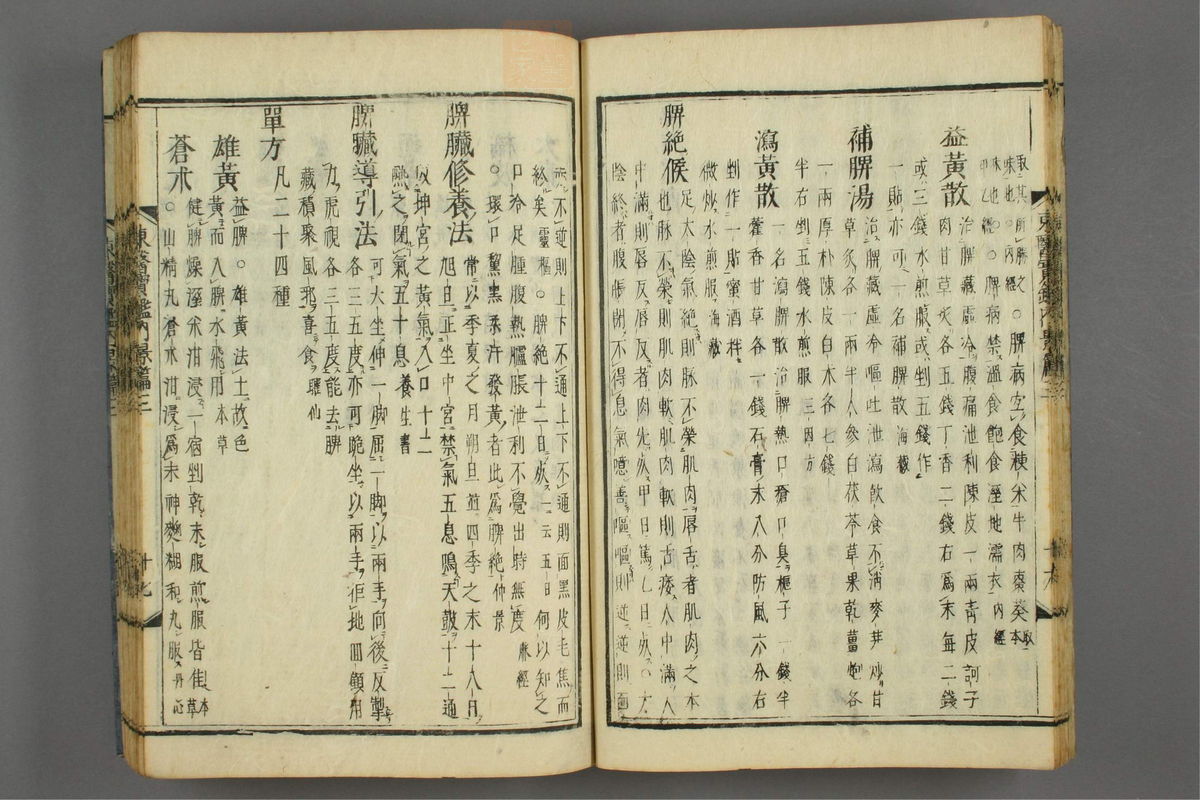 取其所勝之
味也○內經○脾病宜食稉米牛肉棗葵本
味也○脾病禁溫食飽食濕地濡衣內經
甲乙經
益黃散治脾藏虛冷腹痛泄利陳皮一兩靑皮訶子
肉甘草灸各五錢丁香二錢右爲末每二錢
或三錢水煎服或剉五錢作
一貼亦可一名補脾散海藏
補脾湯治脾藏虛冷嘔吐泄瀉飮食不消麥芽炒甘
草灸各一兩半人參白茯苓草果乾薑炮各
一兩厚朴陳皮白朮各七錢
半右剉五錢水煎服三因方
瀉黃散一名瀉脾散治脾熱口瘡口臭梔子一錢半
藿香甘草各一錢石膏末八分防風六分右
剉作一貼蜜酒拌
微炒水煎服海藏
脾絶候足太陰氣絶則脉不榮肌肉脣舌者肌肉之本
也脉不榮則肌肉軟肌肉軟則舌痿人中滿人
中滿則脣反脣反者肉先死甲日篤乙日死○太
陰終者腹脹閉不得息氣噫善嘔嘔則逆逆則面
赤不逆則上下不通上下不通則面黑皮毛焦而
終矣靈樞○脾絶十二日死一云五日何以知之
口冷足腫腹熱臚脹泄利不覺出時無度脉經
○環口黧黑柔汗發黃者此爲脾絶仲景
脾臟修養法常以季夏之月朔旦並四季之末十八日
旭旦正坐中宮禁氣五息鳴天鼓十二通
以坤宮之黃氣入口十二
嚥之閉氣五十息養生書
脾臟導引法可大坐伸一脚屈一脚以兩手向後反掣
各三五度亦可跪坐以兩手拒地回顧用
力虎視各三五度能去脾
藏積聚風邪喜食臞仙
單方凡二十四種
雄黃益脾○雄黃法土故色
黃而入脾水飛用本草
蒼朮健脾燥濕米泔浸一宿剉乾末服煎服皆佳本草
○山精丸蒼朮泔浸爲末神麴糊和丸服丹心
東醫寶鑑內景篇三
十七